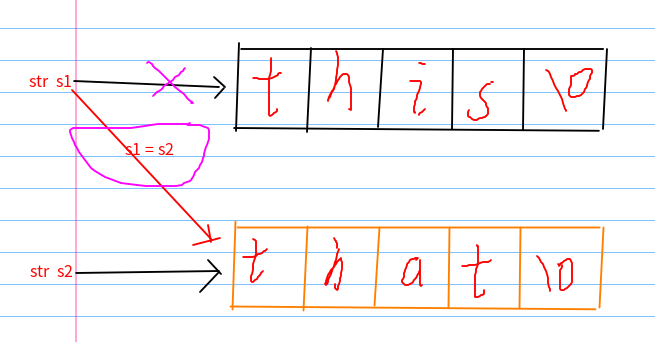 str s1 this\0
s1 = s2
str s2 that\0